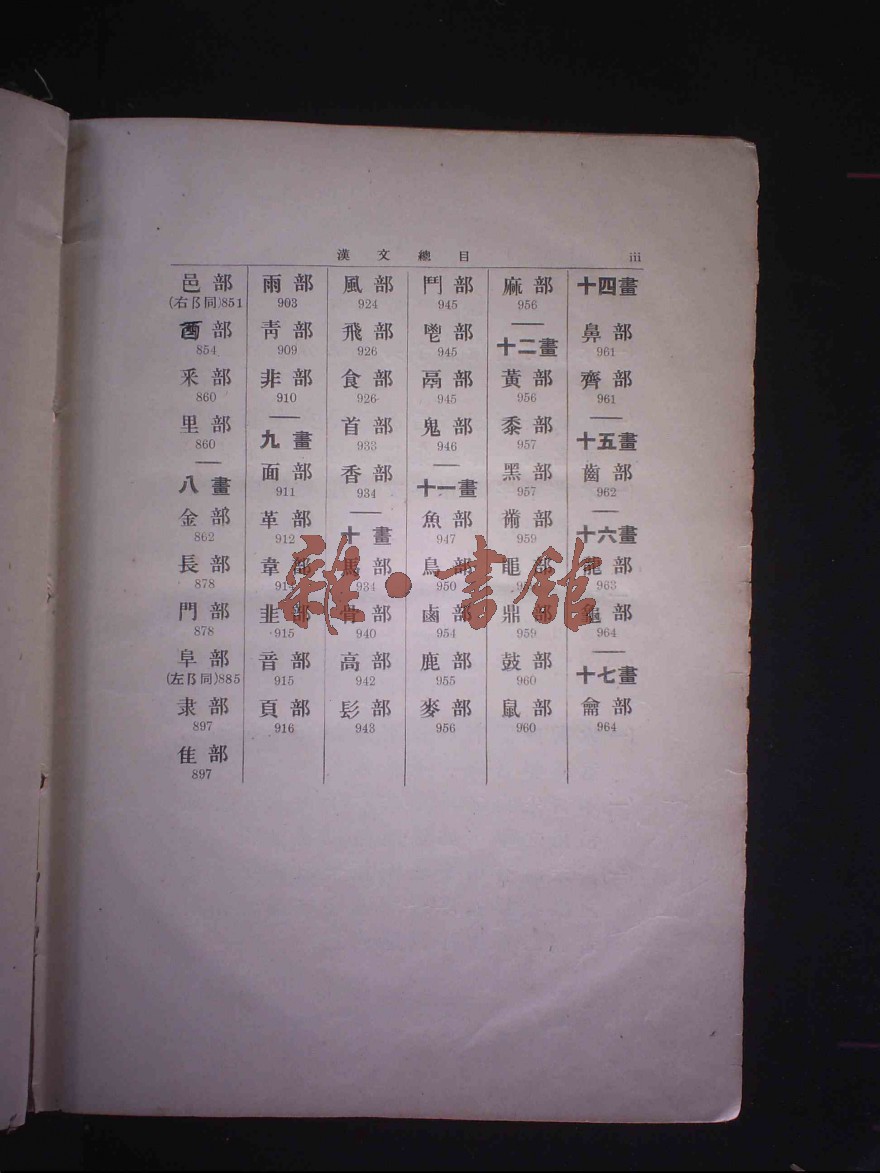 漢文總目 iii
邑部
(右阝同)851
酉部
854
釆部
860
里部
860
八畫
金部
862
長部
878
門部
878
阜部
(左阝同)885
隶部
897
隹部
897
雨部
903
靑部
909
非部
910
九畫
面部
911
革部
912
韋部
914
韭部
915
音部
915
頁部
916
風部
924
飛部
926
食部
926
首部
933
香部
934
十畫
馬部
934
骨部
940
高部
942
髟部
943
鬥部
945
鬯部
945
鬲部
945
鬼部
946
十一畫
魚部
947
鳥部
950
鹵部
954
鹿部
955
麥部
956
麻部
956
十二畫
黃部
956
黍部
957
黑部
957
黹部
959
黽部
鼎部
959
鼓部
960
鼠部
960
十四畫
鼻部
961
齊部
961
十五畫
齒部
962
十六畫
龍部
963
龜部
964
十七畫
龠部
964
雜·書館